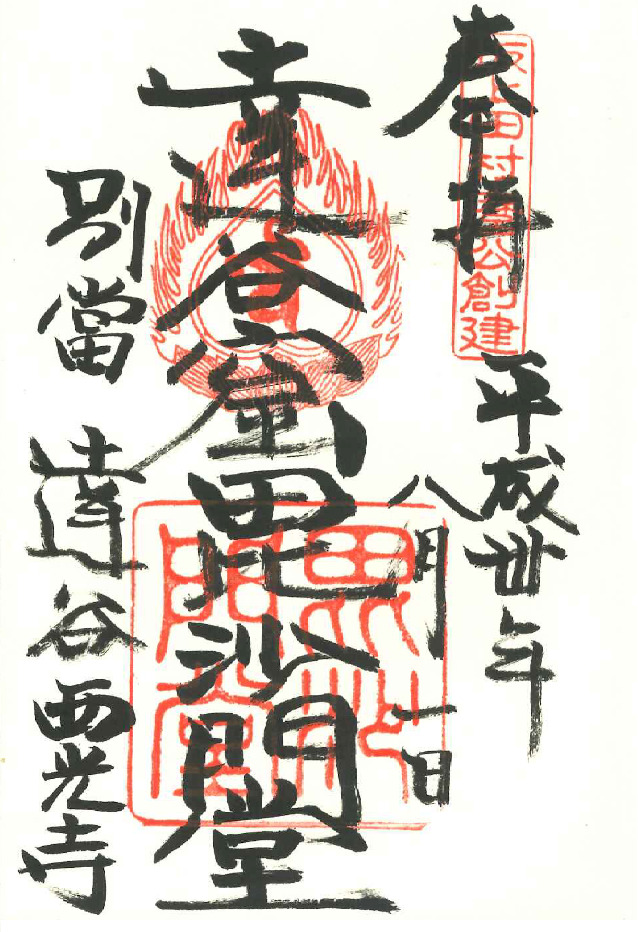 奉拝
坂上田村麿公創建
平成卅年
八月一日
達谷窟毘沙門堂
毘沙門堂
別當
達谷西光寺